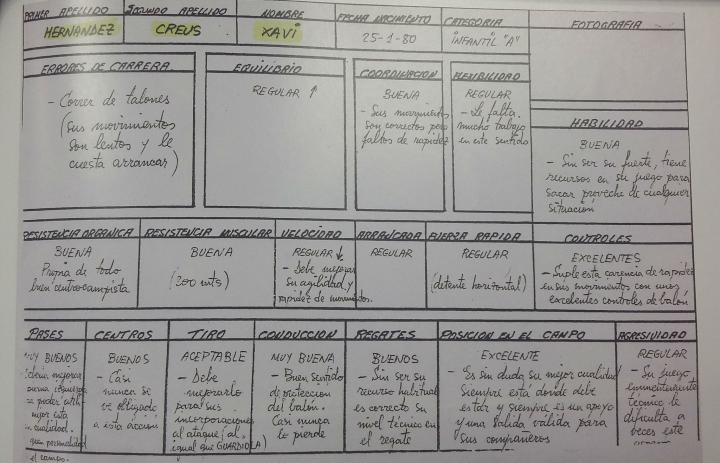 PRIMER APELLIDO
HERNANDEZ
SEGUNDO APELLIDO
CREUS
NOMBRE
XAVI
FECHA NACIMIENTO
25-1-80
CATEGORIA
INFANTIL "A"
FOTOGRAFIA
ERRORES DE CARRERA
- Correr de talones
(sus movimientos
son lentos y le
cuesta arrancar)
EQUILIBRIO
REGULAR ↑
COORDINACION
BUENA
- Sus movimientos
son correctos pero
faltos de rapidez
FLEXIBILIDAD
REGULAR
- Le falta
mucho trabajo
en este sentido
HABILIDAD
BUENA
- Sin ser su fuerte, tiene
recursos en su juego para
sacar provecho de cualquier
situación
RESISTENCIA ORGANICA
BUENA
Propia de todo
buen centrocampista
RESISTENCIA MUSCULAR
BUENA
(300 mts)
VELOCIDAD
REGULAR ↓
- Debe mejorar
su agilidad y
rapidez de movimientos.
ARRANCADA
REGULAR
FUERZA RAPIDA
REGULAR
(detente horizontal)
CONTROLES
EXCELENTES
- Suple esta carencia de rapidez
en sus movimientos con unos
excelentes controles de balón
PASES
MUY BUENOS
mejorar
pierna izquierda
poder
mejor esta
cualidad.
campo.
CENTROS
BUENOS
- Casi
nunca se
ve obligado
a esta acción
TIRO
ACEPTABLE
- Debe
mejorarlo
para sus
incorporaciones
al ataque (al
igual que GUARDIOLA)
CONDUCCION
MUY BUENA
- Buen sentido
de protección
del balón.
Casi nunca
lo pierde
REGATES
BUENOS
- Sin ser su
recurso habitual
es correcto su
nivel técnico en
el regate
POSICION EN EL CAMPO
EXCELENTE
- Es sin duda su mejor cualidad
siempre está donde debe
estar y siempre es un apoyo
y una salida válida para
sus compañeros
AGRESIVIDAD
REGULAR
- Su juego
eminentemente
técnico le
dificulta a
veces este